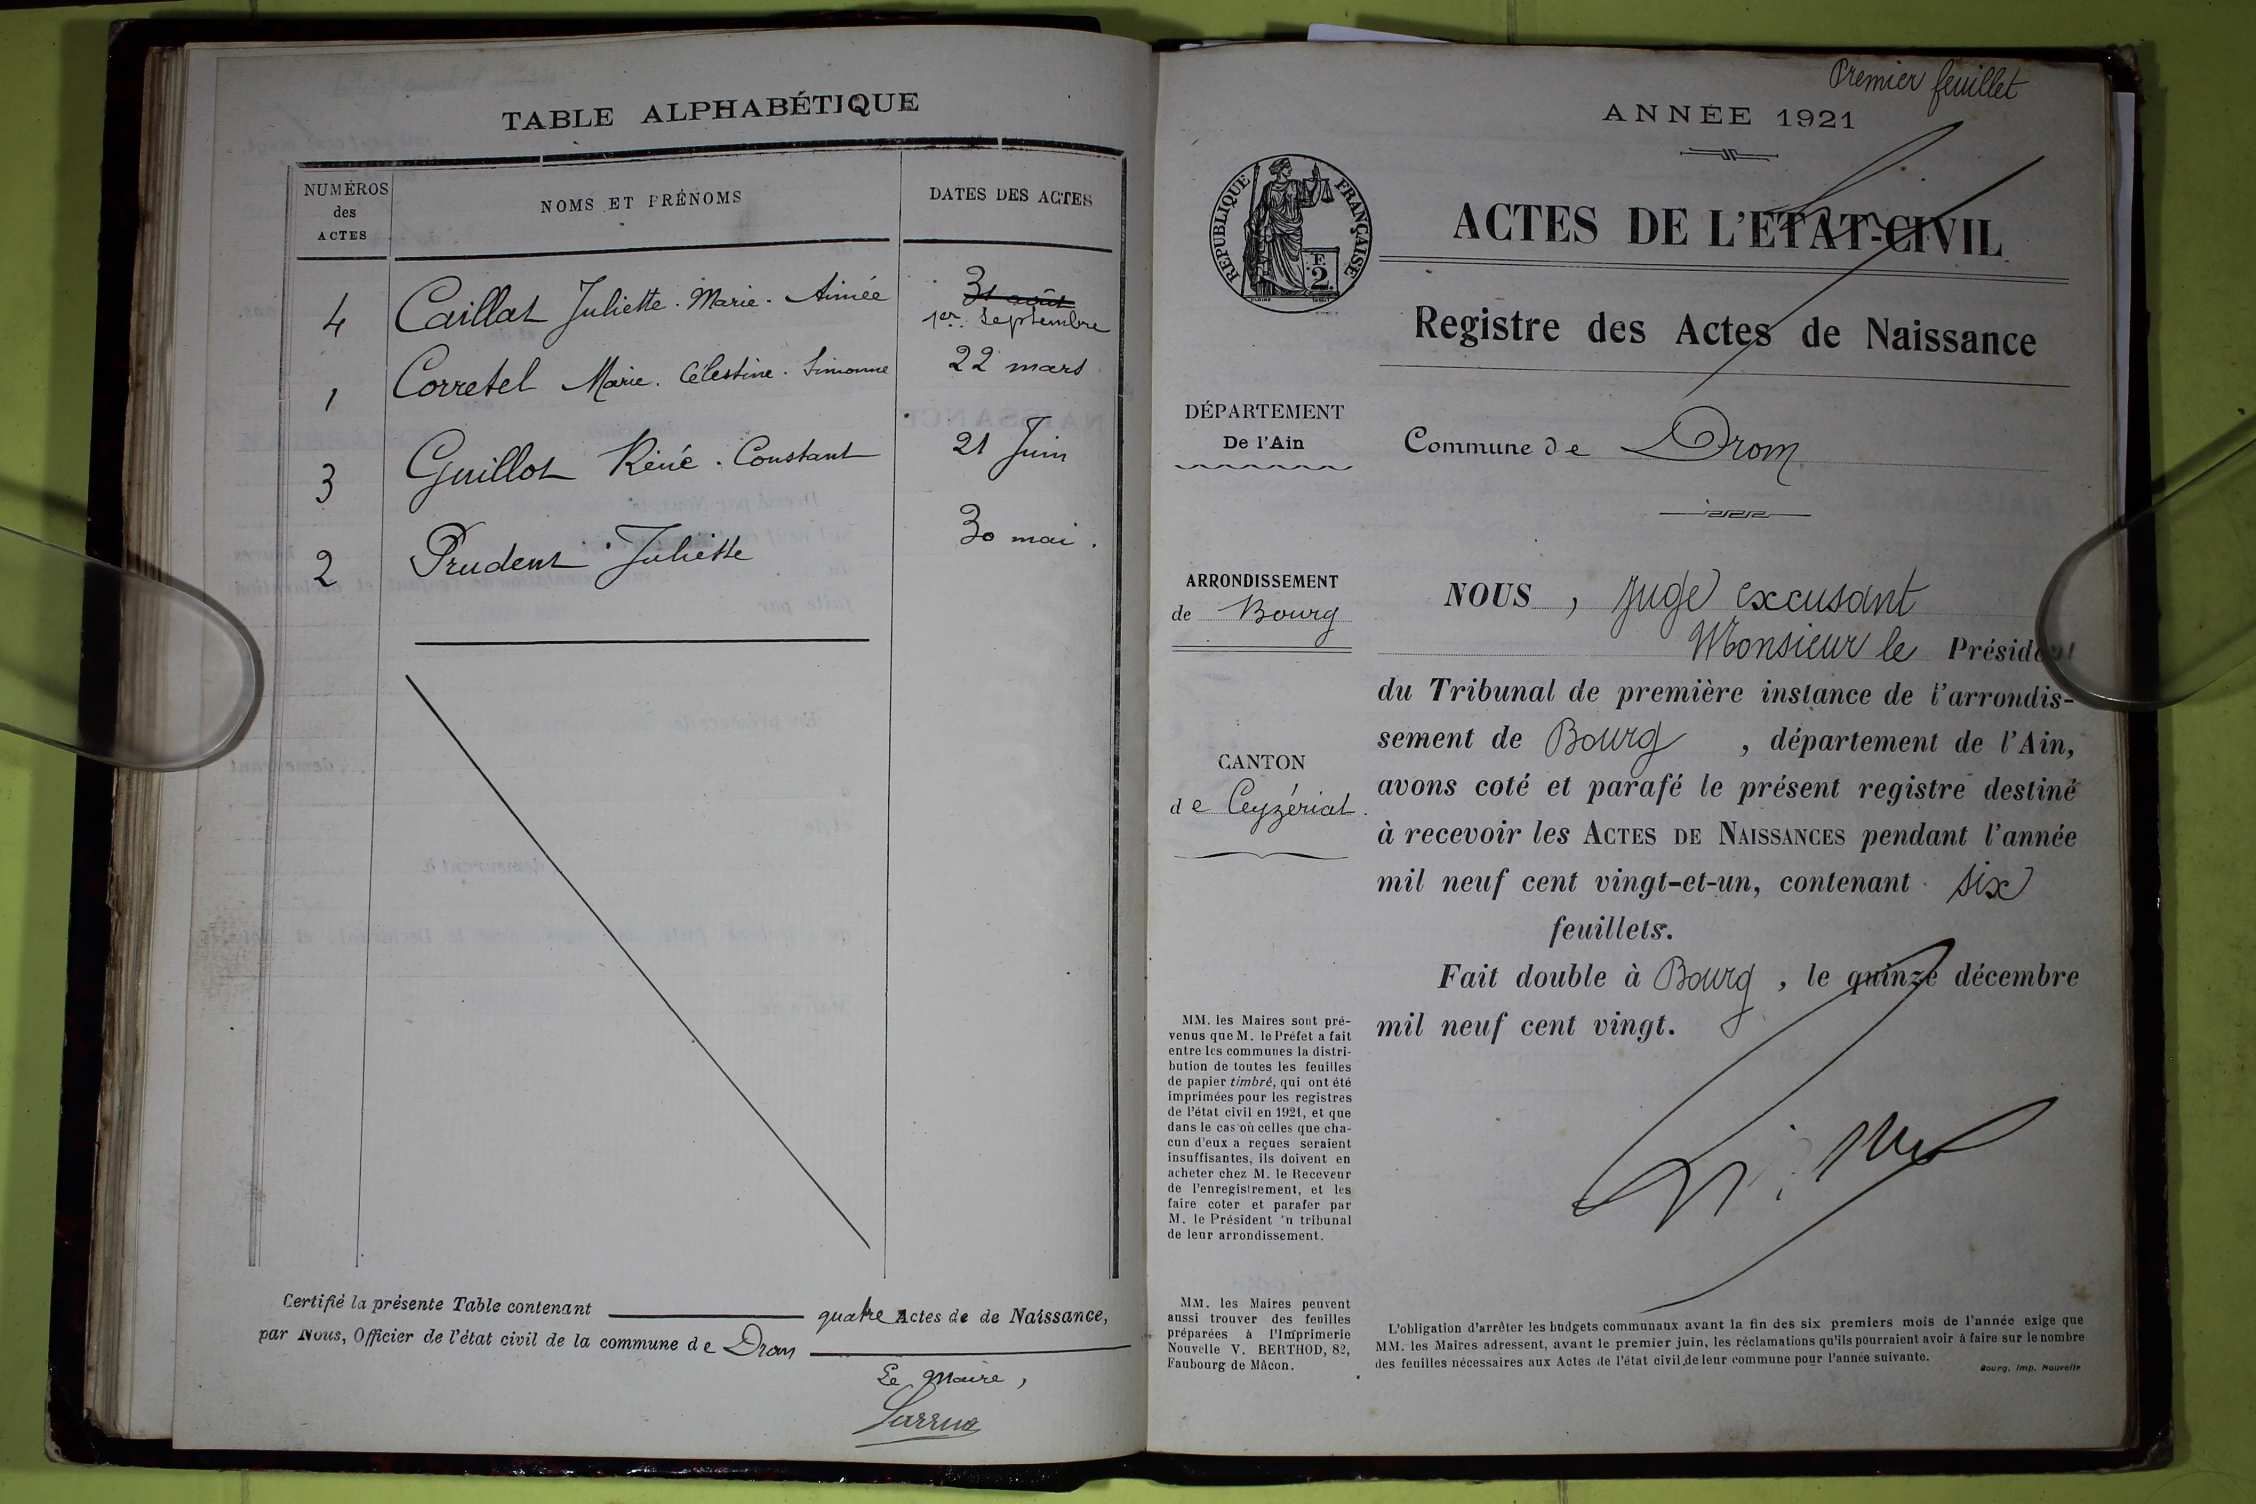 TABLE ALPHABÉTIQUE
NUMÉROS des ACTES
NOMS ET PRÉNOMS
DATES DES ACTES
4 Caillat Juliette. Marie. Aimée 31 août 1er. Septembre
1 Corretel Marie. Célestine. Simonne 22 mars
3 Guillot Réné. Constant 21 Juin
2 Prudent Juliette 30 mai.
Certifié la présente Table contenant quatre Actes de de Naissance,
par Nous, Officier de l'état civil de la commune de Drom
Le Maire,
Premier feuillet
ANNÉE 1921
RÉPUBLIQUE FRANÇAISE
F. 2.
ACTES DE L'ETAT-CIVIL
Registre des Actes de Naissance
DÉPARTEMENT
De l'Ain
Commune de Drom
ARRONDISSEMENT
de Bourg
CANTON
de Ceyzériat.
NOUS, Juge excusant
Monsieur le Président
du Tribunal de première instance de l'arrondis-
sement de Bourg, département de l'Ain,
avons coté et parafé le présent registre destiné
à recevoir les ACTES DE NAISSANCES pendant l'année
mil neuf cent vingt-et-un, contenant six
feuillets.
Fait double à Bourg, le quinze décembre
mil neuf cent vingt.
MM. les Maires sont pré-
venus que M. le Préfet a fait
entre les communes la distri-
bution de toutes les feuilles
de papier timbré, qui ont été
imprimées pour les registres
de l'état civil en 1921, et que
dans le cas où celles que cha-
cun d'eux a reçues seraient
insuffisantes, ils doivent en
acheter chez M. le Receveur
de l'enregistrement, et les
faire coter et parafer par
M. le Président 'u tribunal
de leur arrondissement.
MM. les Maires peuvent
aussi trouver des feuilles
préparées à l'Imprimerie
Nouvelle V. BERTHOD, 82,
Faubourg de Mâcon.
L'obligation d'arrêter les budgets communaux avant la fin des six premiers mois de l'année exige que
MM. les Maires adressent, avant le premier juin, les réclamations qu'ils pourraient avoir à faire sur le nombre
des feuilles nécessaires aux Actes de l'état civil de leur commune pour l'année suivante.
Bourg, Imp. Nouvelle